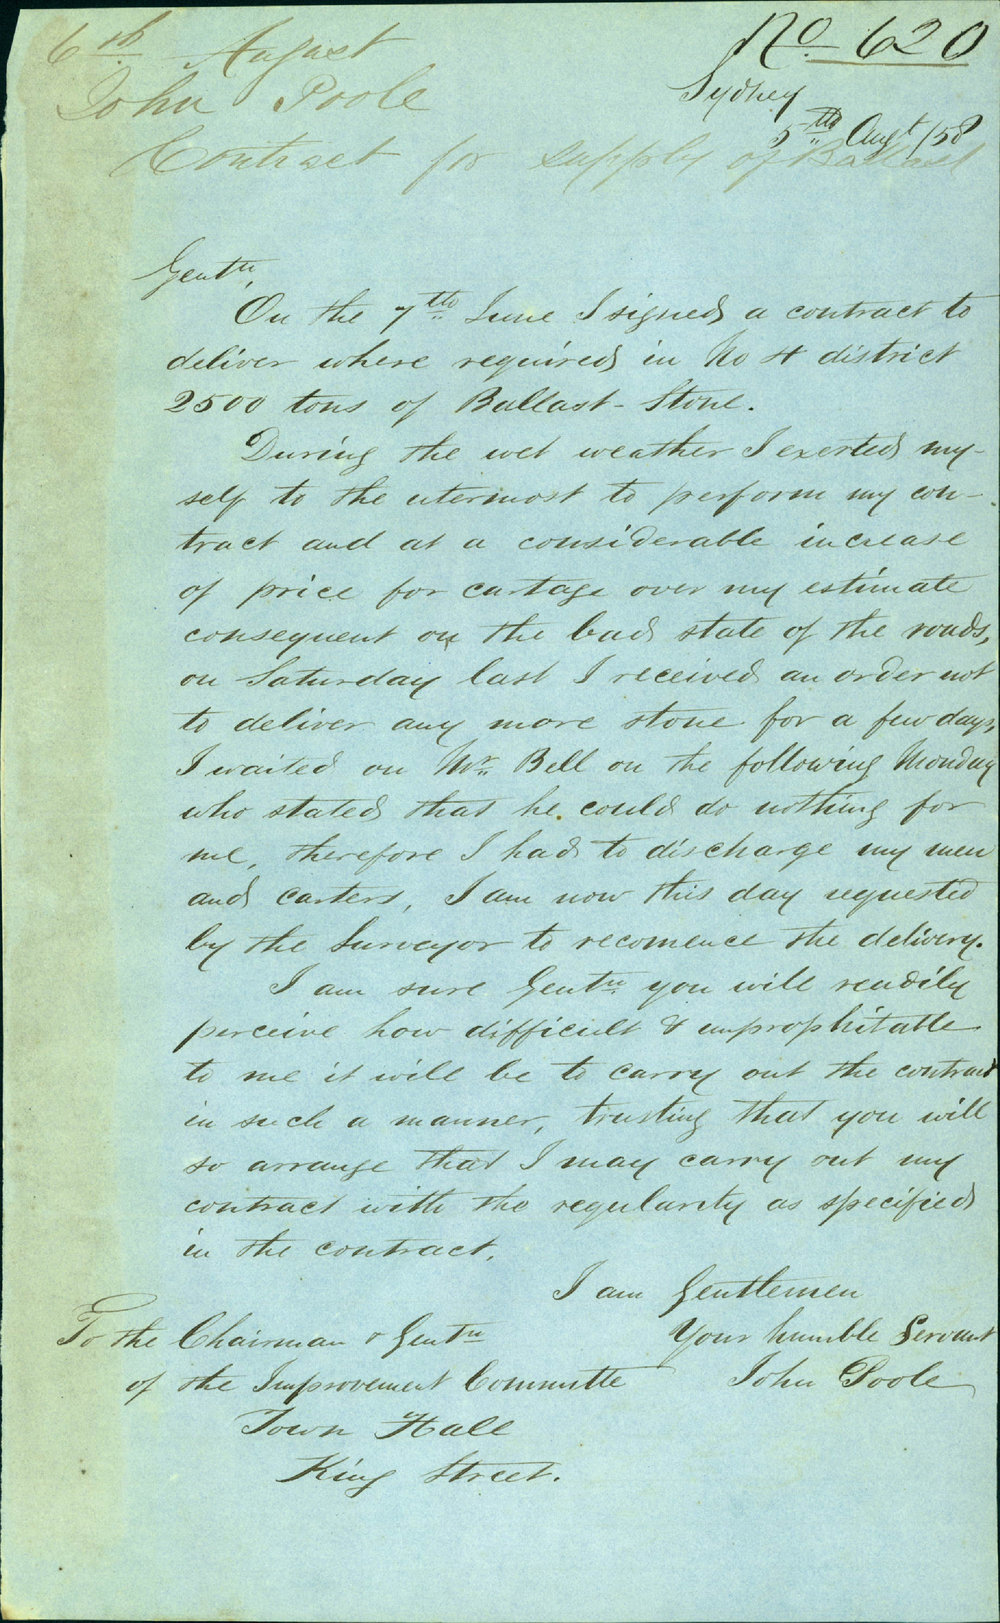 No 620
6th August
John Poole
Contract for supply of Ballast
Sydney
5th Augt /58
Gentn,
On the 7th June I signed a contract to
deliver where required in No 4 district
2500 tons of Ballast-Stone.
During the wet weather I exerted my-
self to the utermost to perform my con-
tract and at a considerable increase
of price for cartage over my estimate
consequent on the bad state of the roads,
on Saturday last I received an order not
to deliver any more stone for a few days,
I waited on Mr. Bell on the following Monday
who stated that he could do nothing for
me, therefore I had to discharge my men
and carters, I am now this day requested
by the Surveyor to recomence the delivery.
I am sure Gentn. you will readily
perceive how difficult & unprophitable
to me it will be to carry out the contract
in such a manner, trusting that you will
so arrange that I may carry out my
contract with the regularity as specified
in the contract.
I am Gentlemen
Your humble Servant
John Poole
To the Chairman & Gentn
of the Improvement Committe
Town Hall
King Street.